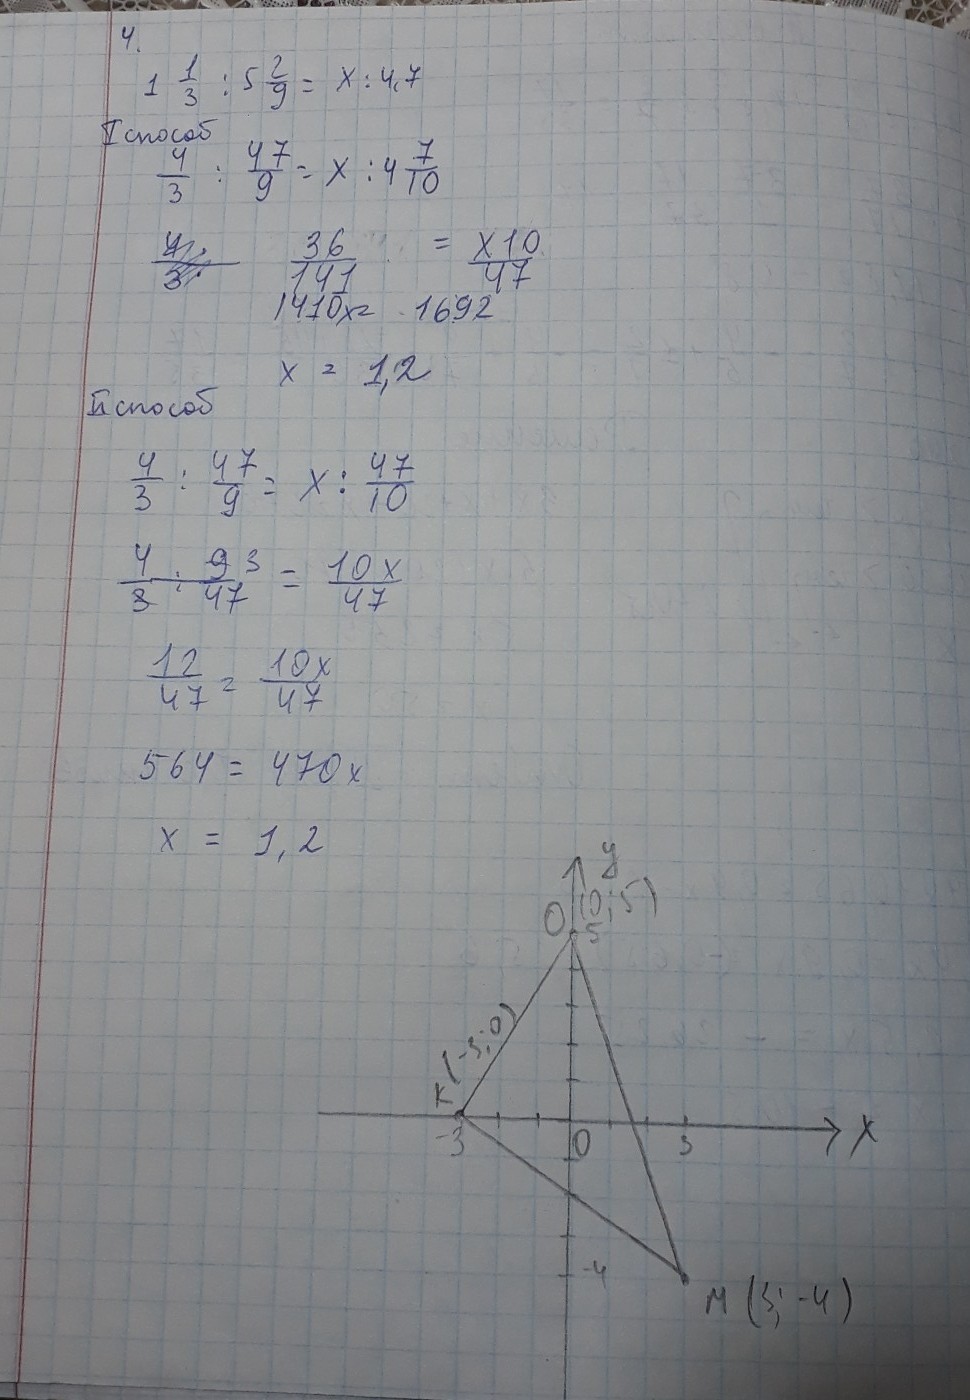 4.
1 1/3 : 5 2/9 = x : 4,7
I способ
4/3 : 47/9 = x : 4 7/10
36/141 = x10/47
1410x = 1692
x = 1,2
II способ
4/3 : 47/9 = x : 47/10
4/3 : 9 3/47 = 10x/47
12/47 = 10x/47
564 = 470x
x = 1,2
y
O (0; 5)
5
K (-3; 0)
-3 0 3 X
-4
M (3; -4)